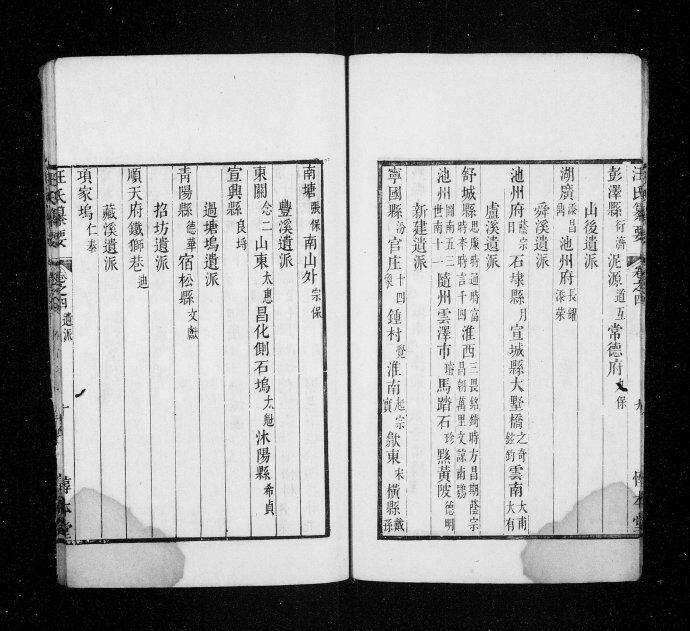 汪氏纂要 卷之四
彭澤縣 衍濟 泥源 道互 常德府 保
山後遺派
湖廣 添昌 池州府 長耀 添萊
舜溪遺派
池州府 蔭宗 石埭縣 月 宣城縣大墅橋 之奇 鉉鈞 雲南 大甫 大有
盧溪遺派
舒城縣 思廉時通時富 時時時言千四 淮西 三畏銘綺時方昌期蔭宗 昌朝萬里文諒南鶚
池州 圖南五三 世南十一 隨州雲澤市 馬踏石 珍 黟黃陂 德明
新建遺派
寧國縣 汾 官庄 十四 鍾村 覺 淮南 起宗 實 歙東 宋 橫縣 戴 孫
南塘 張保 南山外 宗保
豐溪遺派
東關 念二 山東 太惠 昌化側石塢 太魁 沐陽縣 希貞
宣興縣 良埒
過塘塢遺派
青陽縣 德華 宿松縣 文獻
招坊遺派
順天府鐵獅巷 迪
藏溪遺派
項家塢 仁泰
汪氏纂要 卷之四 遺派 十